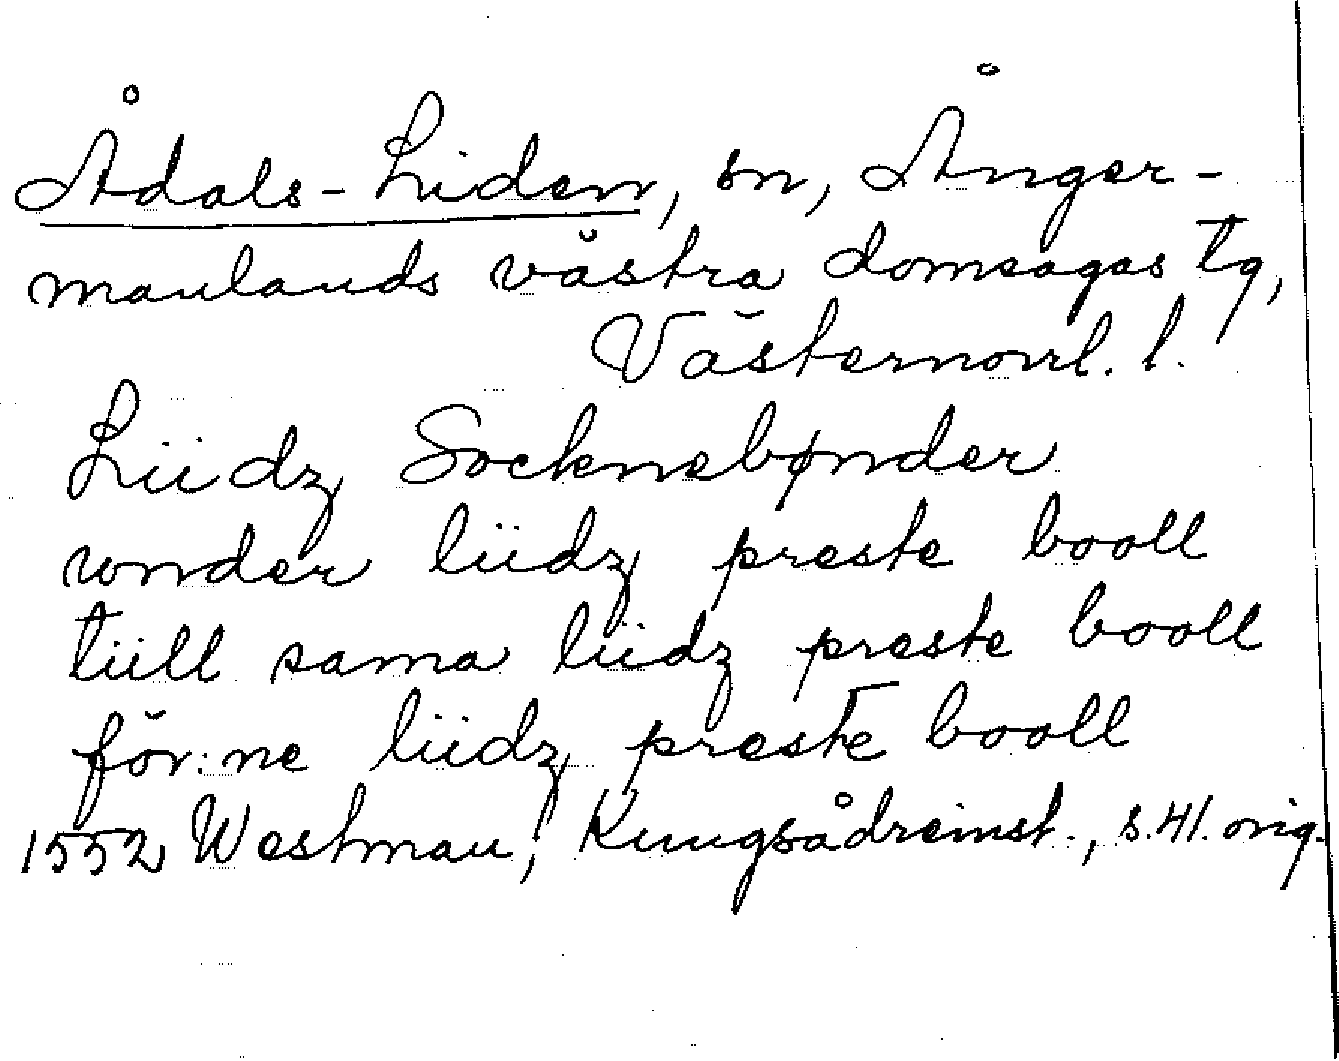 Ådals-Liden, sn, Ånger-
manlands västra domsagas tg,
Västernorrl. l.
Liidz Socknebønder
wnder liidz preste booll
tiill sama liidz preste booll
för:ne liidz preste booll
1552 Westman, Kungsådreinst., s. 41. orig.